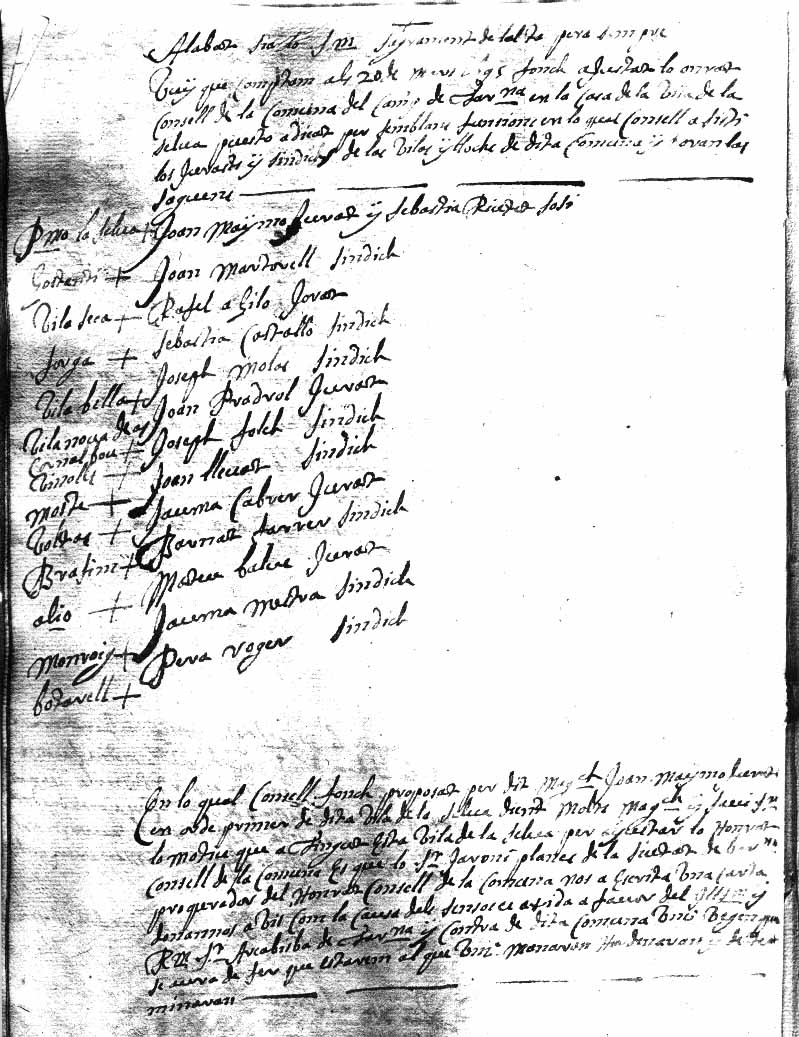 Alabat sia lo S.m Sagrament de laltar pera sempre
Vuy que comptam als 20 de Mars fonch ajustat lo onrat
Consell de la Comuna del Camp de Tarna en la Casa de la Vila de la
selva puesto adicat per semblans funtions en lo qual Consell assisti
los Jurats y sindichs de las Vilas y llochs de dita Comuna y foran los
saguens
Pmo la selva + Joan Maymo Jurat y sebastia
Costanti + Joan Martorell sindich
Vila seca + Rafel a Gilo Jorat
+ sebastia Castallo sindich
Vila bella + Joseph Molas sindich
Vilanova de as Joan Pradrol Jurat
Cornalbou + Joseph folch sindich
Vinolls + Joan llevat sindich
+ Jauma Cabrer Jurat
Voltas + Barnat farrer sindich
Brafim + Mateu Jurat
alio + Jauma Mestra sindich
Monroig + Pera roger sindich
botarell +
En lo qual Consell fonch proposat per dit Magch Joan Maymo Jurat
en orde primer de dita Vila de la Selva dient Molts Magch y Savis Srs
lo motiu que a tingut esta Vila de la selva per ajustar lo Honrat
Consell de la Comuna es que lo Sr Jaroni planes de la siutat de
procurador del Honrat Consell de la Comuna nos a escrita una carta
donantnos a vis com la causa dels sensos a exida a favor del Illm y
Rm Sr Arcabisba de Tarna y contra de dita Comuna Vms vegen que
se aura de fer que estarem al que Vms manaran Hordenaran y deter
minaran